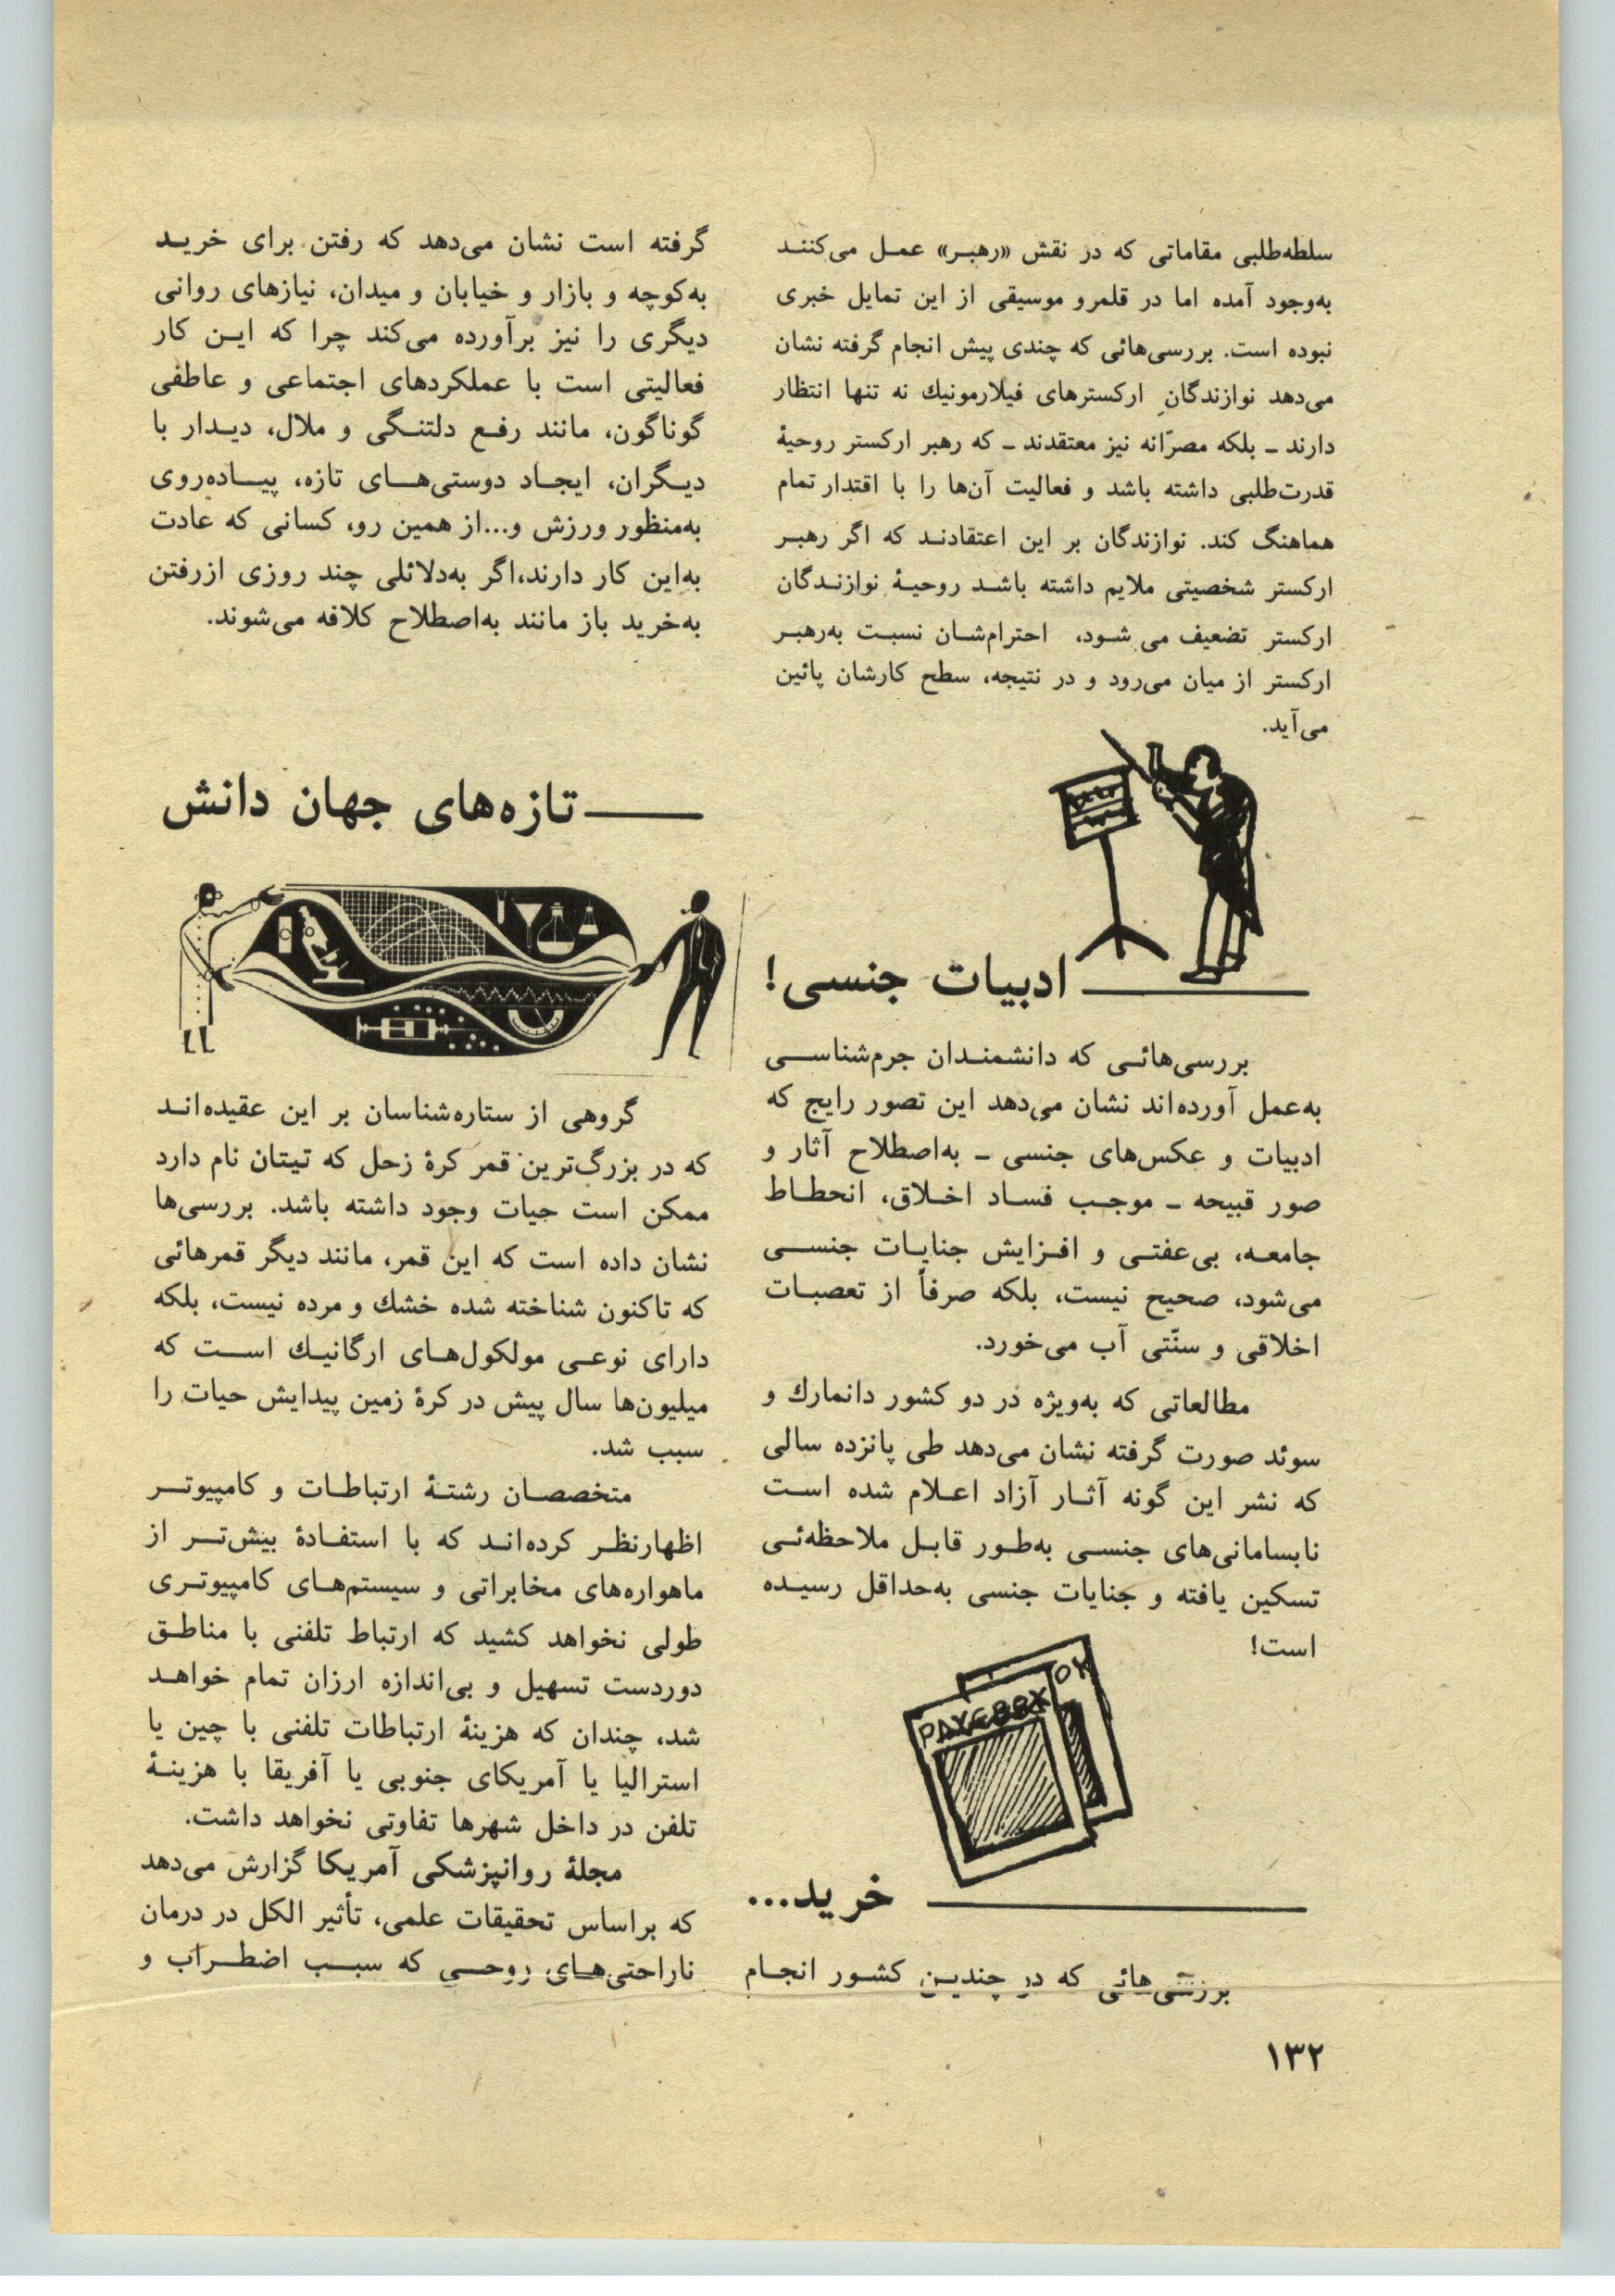 سلطه‌طلبی مقاماتی که در نقش «رهبـر» عمـل می‌کننـد
به‌وجود آمده اما در قلمرو موسیقی از این تمایل خبری
نبوده است. بررسی‌هائی که چندی پیش انجام گرفته نشان
می‌دهد نوازندگانِ ارکسترهای فیلارمونیك نه تنها انتظار
دارند ـ بلکه مصرّانه نیز معتقدند ـ که رهبر ارکستر روحیهٔ
قدرت‌طلبی داشته باشد و فعالیت آن‌ها را با اقتدار تمام
هماهنگ کند. نوازندگان بر این اعتقادنـد که اگر رهبـر
ارکستر شخصیتی ملایم داشته باشـد روحیـهٔ نوازنـدگان
ارکستر تضعیف می شـود، احترام‌شـان نسبـت به‌رهبـر
ارکستر از میان می‌رود و در نتیجه، سطح کارشان پائین
می‌آید.
ادبیات جنسی!
بررسی‌هائـی که دانشمنـدان جرم‌شناســی
به‌عمل آورده‌اند نشان می‌دهد این تصور رایج که
ادبیات و عکس‌های جنسی ـ به‌اصطلاح آثار و
صور قبیحه ـ موجـب فسـاد اخـلاق، انحطـاط
جامعـه، بی‌عفتـی و افـزایش جنایـات جنســی
می‌شود، صحیح نیست، بلکه صرفاً از تعصبـات
اخلاقی و سنّتی آب می‌خورد.
مطالعاتی که به‌ویژه در دو کشور دانمارك و
سوئد صورت گرفته نشان می‌دهد طی پانزده سالی
که نشر این گونه آثـار آزاد اعـلام شده اسـت
نابسامانی‌های جنسـی به‌طـور قابـل ملاحظه‌ئـی
تسکین یافته و جنایات جنسی به‌حداقل رسیـده
است!
خرید...
بررسی‌هائی که در چندیـن کشـور انجـام
گرفته است نشان می‌دهد که رفتن برای خریـد
به‌کوچه و بازار و خیابان و میدان، نیازهای روانی
دیگری را نیز برآورده می‌کند چرا که ایـن کار
فعالیتی است با عملکردهای اجتماعی و عاطفی
گوناگون، مانند رفـع دلتنـگی و ملال، دیـدار با
دیـگران، ایجـاد دوستی‌هــای تازه، پیــاده‌روی
به‌منظور ورزش و...از همین رو، کسانی که عادت
به‌این کار دارند،اگر به‌دلائلی چند روزی ازرفتن
به‌خرید باز مانند به‌اصطلاح کلافه می‌شوند.
تازه‌های جهان دانش
گروهی از ستاره‌شناسان بر این عقیده‌انـد
که در بزرگ‌ترین قمر کرهٔ زحل که تیتان نام دارد
ممکن است حیات وجود داشته باشد. بررسی‌ها
نشان داده است که این قمر، مانند دیگر قمرهائی
که تاکنون شناخته شده خشك و مرده نیست، بلکه
دارای نوعـی مولکول‌هـای ارگانیـك اســت که
میلیون‌ها سال پیش در کرهٔ زمین پیدایش حیات را
سبب شد.
متخصصـان رشتـهٔ ارتباطـات و کامپیوتــر
اظهارنظـر کرده‌انـد که با استفـادهٔ بیش‌تــر از
ماهواره‌های مخابراتی و سیستم‌هـای کامپیوتـری
طولی نخواهد کشید که ارتباط تلفنی با مناطـق
دوردست تسهیل و بی‌اندازه ارزان تمام خواهـد
شد، چندان که هزینهٔ ارتباطات تلفنی با چین یا
استرالیا یا آمریکای جنوبی یا آفریقا با هزینـهٔ
تلفن در داخل شهرها تفاوتی نخواهد داشت.
مجلهٔ روانپزشکی آمریکا گزارش می‌دهد
که براساس تحقیقات علمی، تأثیر الکل در درمان
ناراحتی‌هـای روحــی که سبــب اضطــراب و
۱۳۲